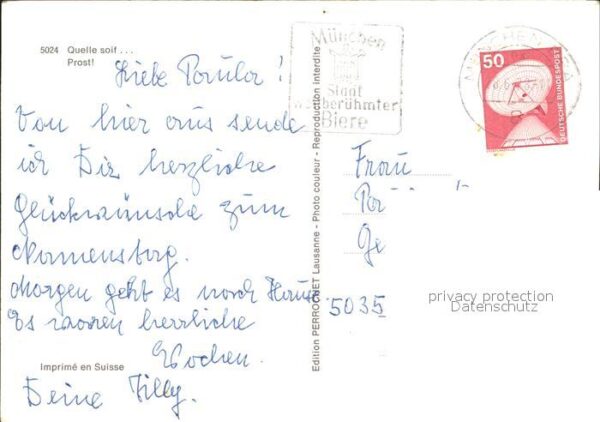 5024 Quelle soif ...
Prost!
Liebe
Von hier aus sende
ich Dir herzliche
Glückwünsche zum
Namenstag.
Morgen geht es nach Hause
Es waren herrliche
Wochen.
Deine Tilly.
Imprimé en Suisse
Edition PERROCHET Lausanne - Photo couleur - Reproduction interdite
München
Stadt
weltberühmter
Biere
MÜNCHEN
50
DEUTSCHE BUNDESPOST
Frau
5035
privacy protection
Datenschutz